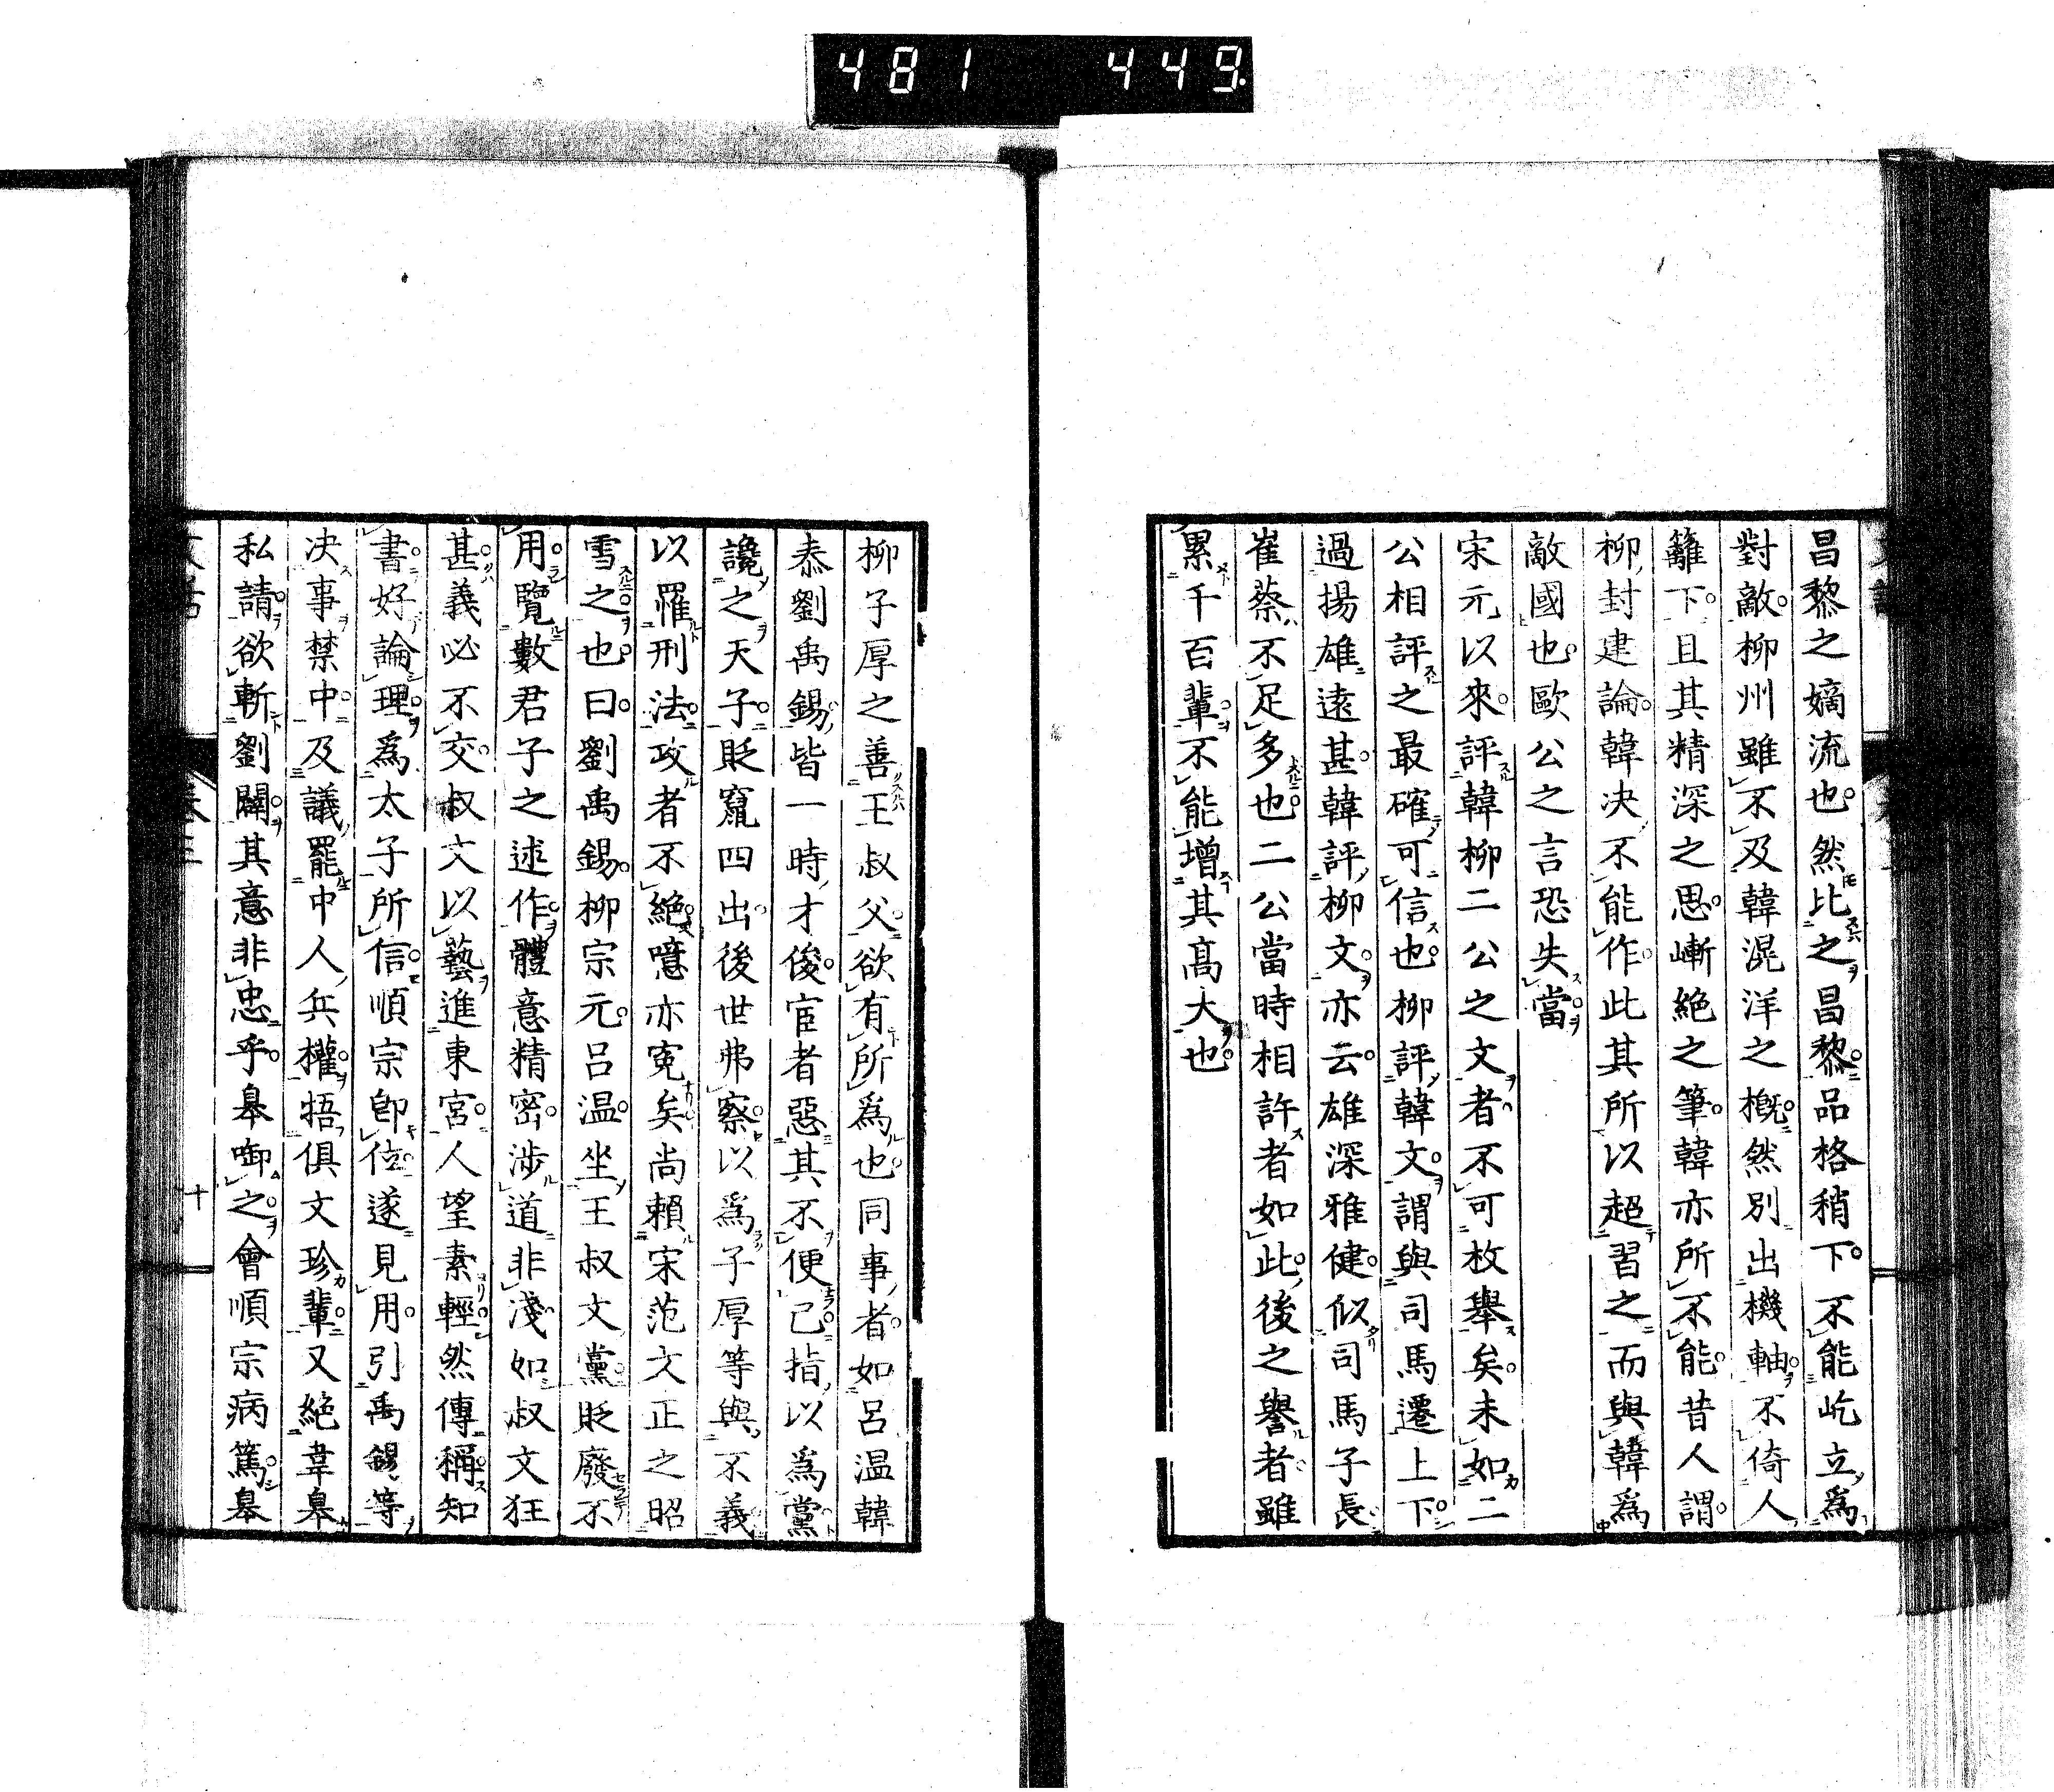 481 449
昌黎之嫡流也然比之昌黎品格稍下不能屹立爲
對敵柳州雖不及韓混洋之概然別出機軸不倚人
籬下且其精深之思嶄絶之筆韓亦所不能昔人謂
柳封建論韓决不能作此其所以超習之而與韓爲
敵國也歐公之言恐失當
宋元以來評韓柳二公之文者不可枚舉矣未如二
公相評之最確可信也柳評韓文謂與司馬遷上下
過揚雄遠甚韓評柳文亦云雄深雅健似司馬子長
崔蔡不足多也二公當時相許者如此後之譽者雖
累千百輩不能增其高大也
柳子厚之善王叔父欲有所爲也同事者如呂温韓
泰劉禹錫皆一時才俊宦者惡其不便己指以爲黨
讒之天子貶竄四出後世弗察以爲子厚等與不義
以罹刑法政者不絶噫亦寃矣尚賴宋范文正之昭
雪之也曰劉禹錫柳宗元呂温坐王叔文黨貶廢不
用覽數君子之述作體意精密渉道非淺如叔文狂
甚義必不交叔文以藝進東宮人望素輕然傳稱知
書好論理爲太子所信順宗卽位遂見用引禹錫等
决事禁中及議罷中人兵權牾俱文珍輩又絶韋皋
私請欲斬劉闢其意非忠乎皋啣之會順宗病篤皋
十